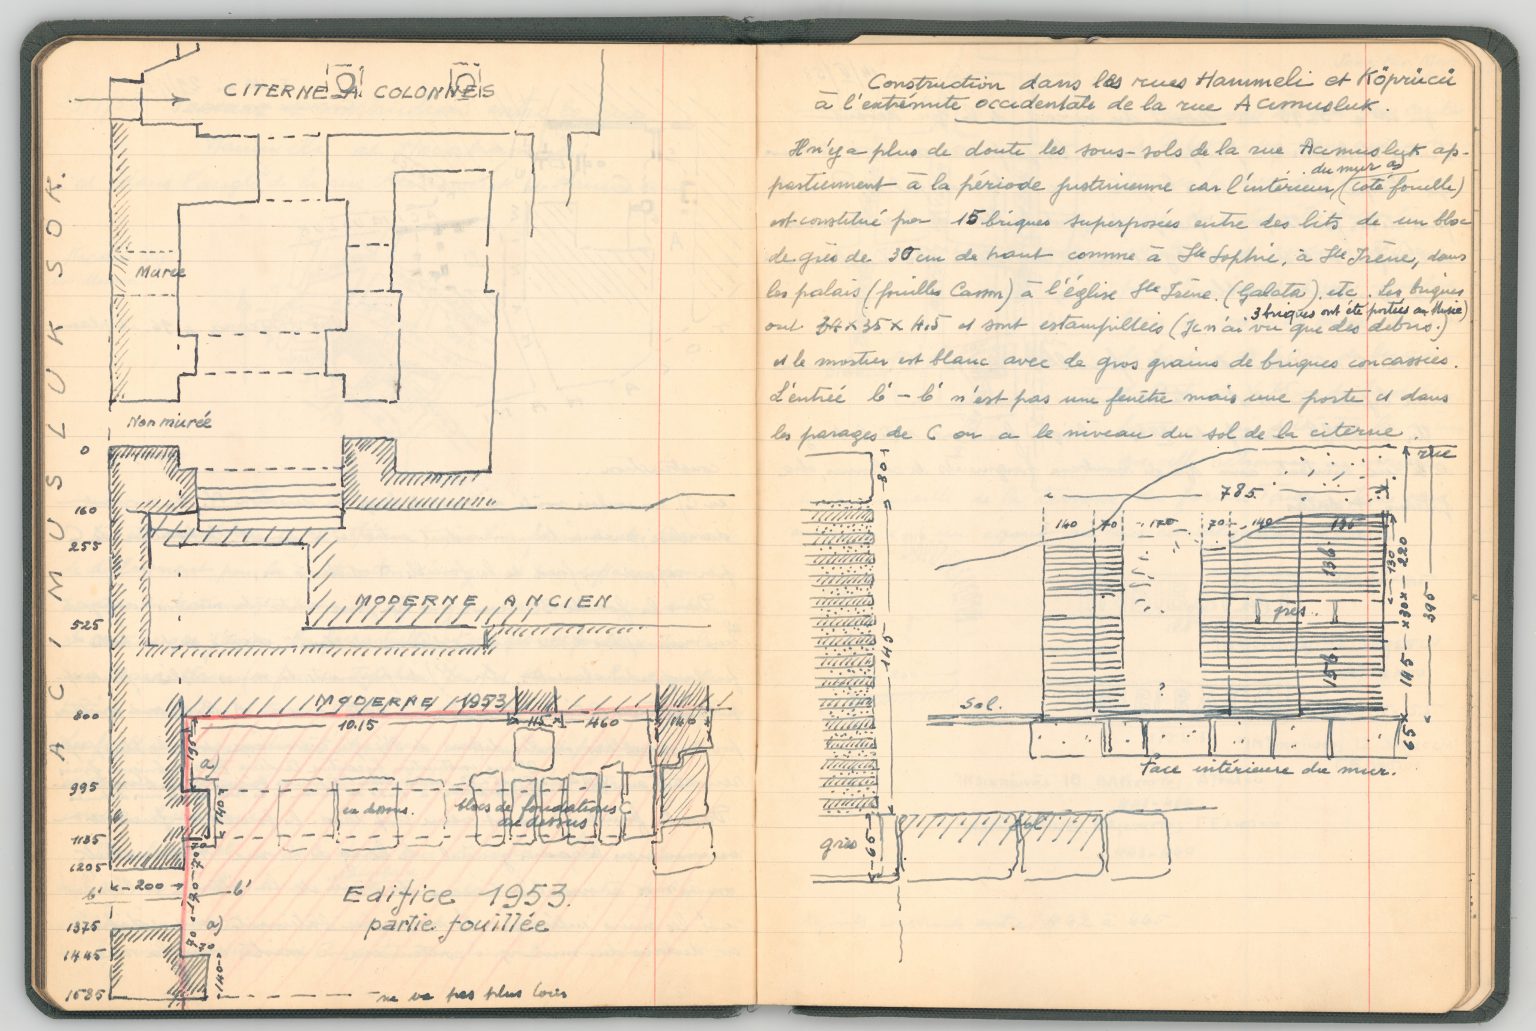 CITERNE A COLONNES
ACIMUSLUK SOK.
Murée
Non murée
0
160
255
525
800
995
1135
1205
1375
1445
1585
MODERNE ANCIEN
MODERNE 1953
10.15
115
460
140
195
a)
140
en dessus.
blocs de fondations C
au dessus.
70
70
b' 200 b'
170
70
a)
70
140
Edifice 1953.
partie fouillée
ne va pas plus loin
Construction dans les rues Hammeli et Köprücü
à l'extrémité occidentale de la rue Acımusluk.
Il n'y a plus de doute les sous-sols de la rue Acımusluk ap-
du mur a)
partiennent à la période justinienne car l'intérieur (coté fouille)
est constitué par 15 briques superposées entre des lits de un bloc
de grès de 30 cm de haut comme à Ste Sophie, à Ste Irène, dans
les palais (fouilles Casson) à l'église Ste Irène (Galata) etc. Les briques
3 briques ont été portées au Musée)
ont 34 x 35 x 4.5 et sont estampillées (Je n'ai vu que des débris.)
et le mortier est blanc avec de gros grains de briques concassées.
L'entrée b'-b' n'est pas une fenêtre mais une porte et dans
les parages de C on a le niveau du sol de la citerne.
80
145
65
grès
sol
rue
785
140
70
170
70
140
195
15b.
grès
15b.
130
220
30
145
395
65
Sol.
?
Face intérieure du mur.